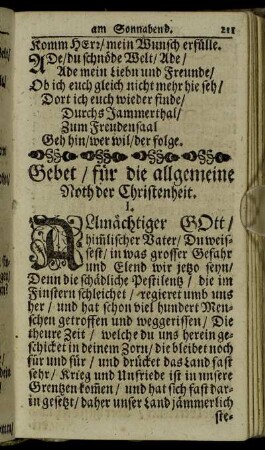 am Sonnabend. 211
Komm HErr/ mein Wunsch erfülle.
ADe/ du schnöde Welt/ Ade/
Ade mein Liebn und Freunde/
Ob ich euch gleich nicht mehr hie seh/
Dort ich euch wieder finde/
Durchs Jammerthal/
Zum Freudensaal
Geh hin/ wer wil/ der folge.
Gebet/ für die allgemeine
Noth der Christenheit.
1.
ALlmächtiger GOtt/
himlischer Vater/ Du weis-
sest/ in was grosser Gefahr
und Elend wir jetzo seyn/
Denn die schädliche Pestilentz/ die im
Finstern schleichet/ regieret umb uns
her/ und hat schon viel hundert Men-
schen getroffen und weggerissen/ Die
theure Zeit/ welche du uns herein ge-
schicket in deinem Zorn/ die bleibet noch
für und für/ und drücket das Land fast
sehr/ Krieg und Unfriede ist in unsere
Grentzen kom̃en/ und hat sich fast dar-
in gesetzt/ daher unser Land jämmerlich
ste-